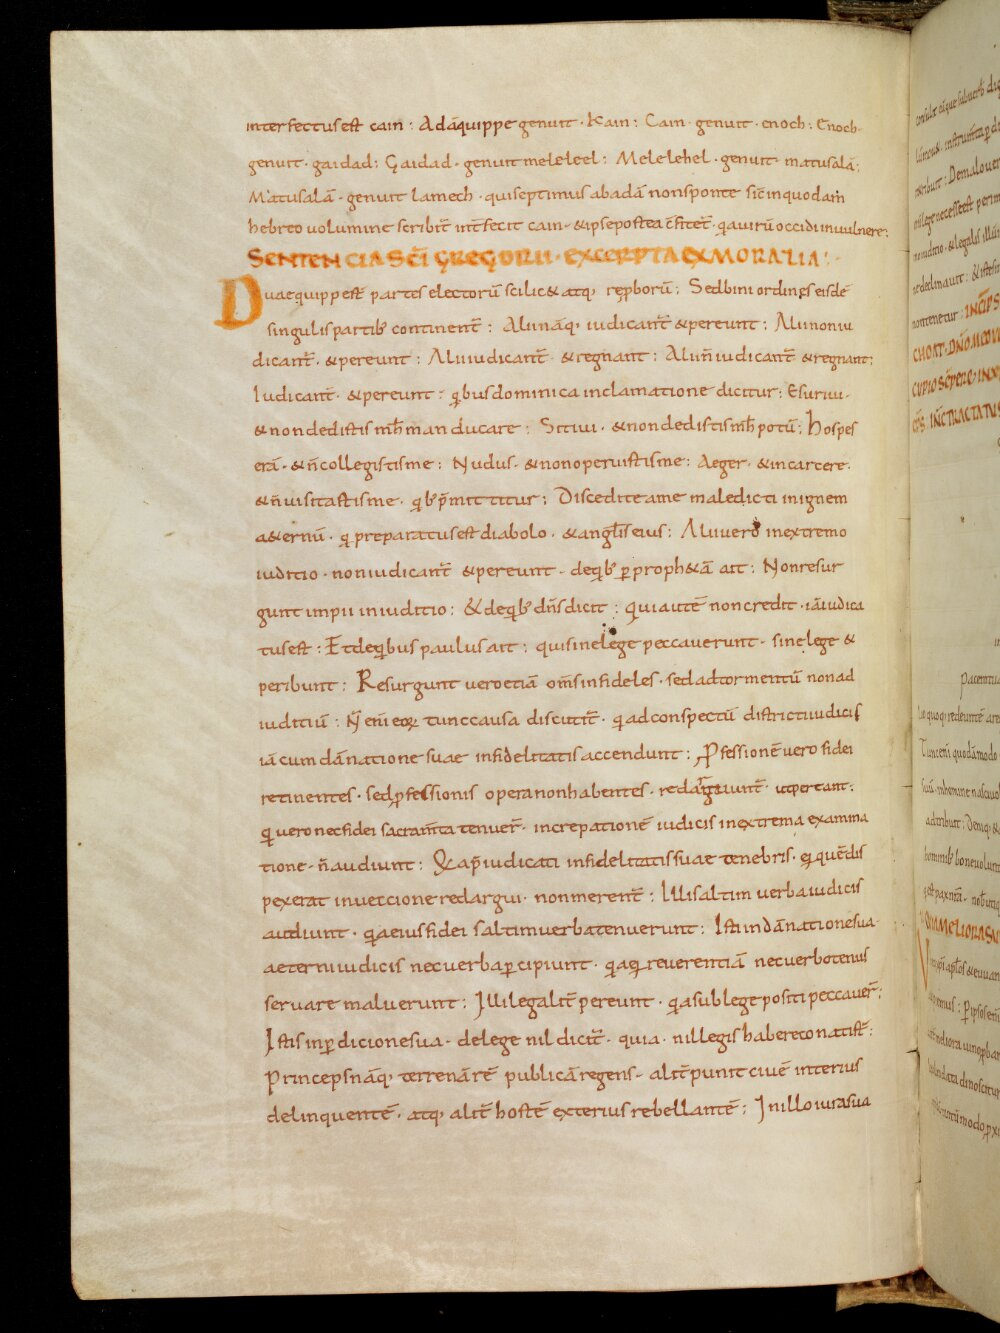 interfectus est cain : Adā quippe genuit · Kain : Cain · genuit · enoch : Enoch ·
genuit · gaidad : Gaidad · genuit meleleel : Melelehel · genuit · matusalā ;
Matusalā · genuit lamech · qui septimus ab adā non sponte sic̄ in quodam
hebreo uolumine scribit̄ int̄fecit cain · & ipse postea c̄fitet̄ · q̄a uirū occidi in uulnere ;
SENTENCIA SC̄I GREGORII · EXCERPTA EX MORALIA : ·
Duae quippe st̄ partes electorū scilic& atq; rep̄borū ; Sed bini ordines eisdē
singulis partib; continent̄ : Alii nāq; iudicant̄ & pereunt : Alii non iu
dicant̄ · & pereunt : Alii iudicant̄ · & regnant : Alii n̄ iudicant̄ & regnant :
Iudicant̄ · & pereunt : qib; us dominica inclamatione dicitur : Esuriui ·
& non dedistis mh̄ manducare : Sitiui · & non dedistis mh̄ potū : hospes
erā · & n̄ collegistis me : Nudus · & non operuistis me : Aeger · & in carcere ·
& n̄ uisitastis me · qib; p̄mittitur : Discedite a me maledicti in ignem
a&ernū · qi preparatus est diabolo · & angl̄is eius : Alii uero in extremo
iuditio · non iudicant̄ & pereunt · de qib; p̱ proph&ā ait : Non resur
gunt impii in iuditio : & de qib; dn̄s dicit : qui autē non credit · iā iudica
tus est : Et de qibus paulus ait : qui sine lege peccauerunt · sine lege &
peribunt : Resurgunt uero etiā oms̄ infideles · sed ad tormentū non ad
iuditiū : N̄ eni eoꝝ tunc causa discutit̄ · qi ad conspectū districti iudicis
iā cum dānatione suae infidelitatis accendunt : Ꝓfessionē uero fidei
retinentes · sed ꝓfessionis opera non habentes · redarguunt̄ · ut pereant :
qi uero nec fidei sacram̄ta tenuer̄ · increpationē iudicis in extrema examina
tione · n̄ audiunt : Q̇a p̄iudicati infidelitatis suae tenebris · ei quē dis
pexerat inuectione redargui · non merent̄ : Illi saltim uerba iudicis
audiunt · q̇a eius fidei saltim uerba tenuerunt : Isti in dānatione sua ·
aeterni iudicis nec uerba p̱cipiunt · q̇a ei reuerentiā nec uerbo tenus
seruare maluerunt : Illi legalit̄ pereunt · q̇a sub lege positi peccauer̄ ;
Istis in p̱dicione sua · de lege nil dicit̄ · quia · nil legis habere conati st̄ :
Princeps nāq; terrenā rē publicā regens · alit̄ punit ciuē interius
delinquentē · atq; alit̄ hostē exterius rebellantē : In illo iura sua